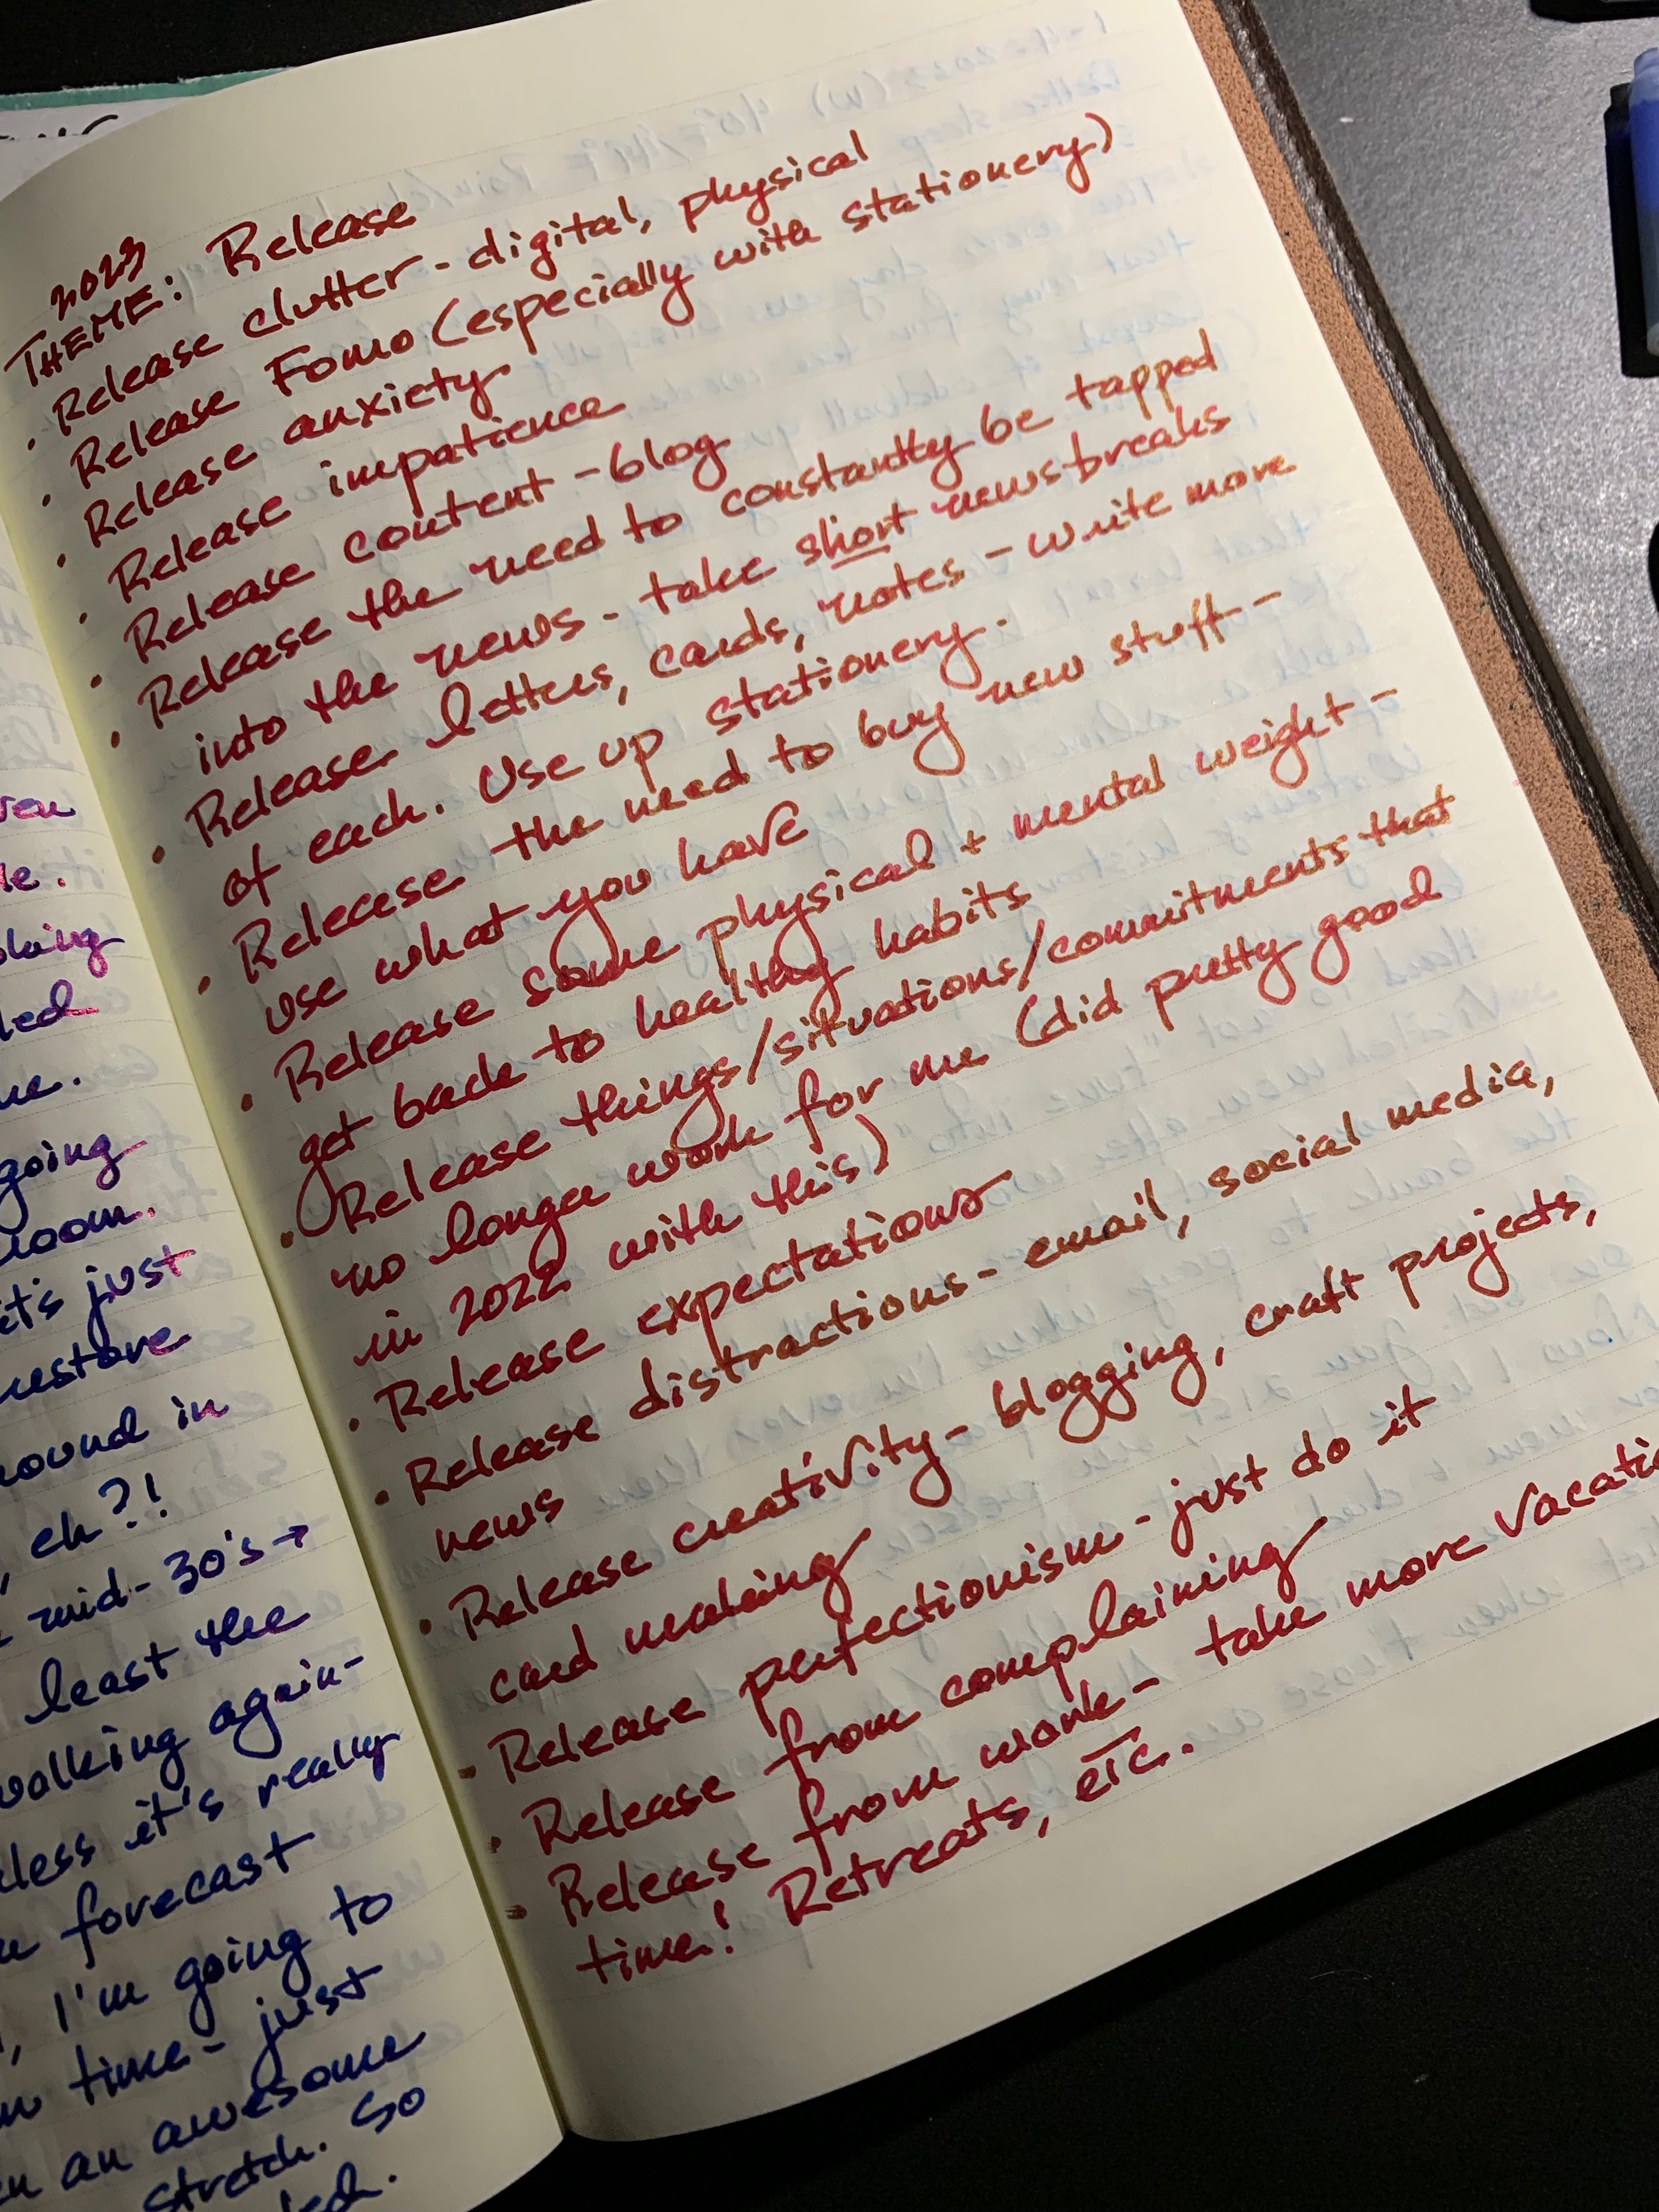 ren
le.
king
led
ne.
going
room.
it's just
restore
round in
, eh?!
mid-30's→
least the
walking again-
less it's really
forecast
, I'm going to
time- just
an awesome
stretch. So
2023
THEME: Release
· Release clutter - digital, physical
· Release Fomo (especially with stationery)
· Release anxiety
· Release impatience
· Release content - blog
· Release the need to constantly be tapped
into the news - take short news breaks
· Release letters, cards, notes - write more
of each. Use up stationery.
· Release the need to buy new stuff -
use what you have
· Release some physical + mental weight -
get back to healthy habits
· Release things/situations/commitments that
no longer work for me (did pretty good
in 2022 with this)
· Release expectations
· Release distractions - email, social media,
news
· Release creativity - blogging, craft projects,
card making
· Release perfectionism - just do it
· Release from complaining
· Release from work - take more vacatio
time! Retreats, etc.